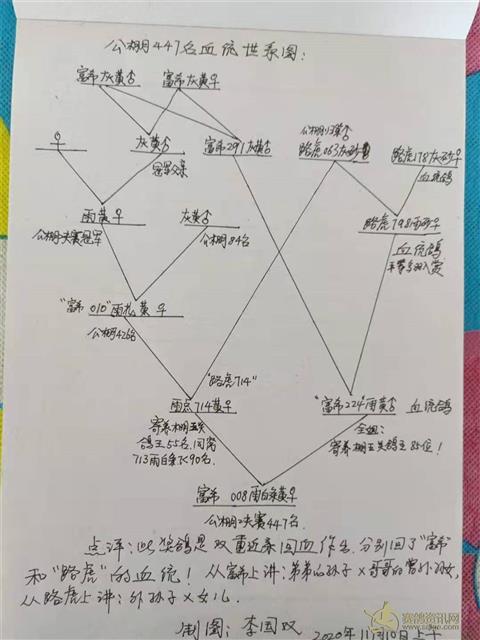 公棚447名血统世系图:
富希灰黄♂ 富希灰黄♀
公棚13名♂
灰黄♂ 富希291灰黄♂ 路虎063灰砂♂ 路虎178灰砂♀
冠军父亲 血统鸽
雨黄♀ 灰黄♂ 路虎798雨砂♀
公棚决赛冠军 公棚84名 血统鸽
"富希010"雨花黄♀
公棚426名
"路虎714"
雨点714黄♀ "富希224"雨黄♂ 血统鸽
寄养棚五关 全姐:
鸽王55名,同窝 寄养棚五关鸽王85位!
713雨白条水90名.
富希008雨白条黄♀
公棚决赛447名.
点评:此奖鸽是双重近亲回血作出,分别回了"富希"
和"路虎"的血统!从富希上讲:弟弟的孙子×哥哥的曾外孙女,
从路虎上讲:外孙子×女儿.
制图:李国双 2020年11月10日上午
赛鸽资讯网